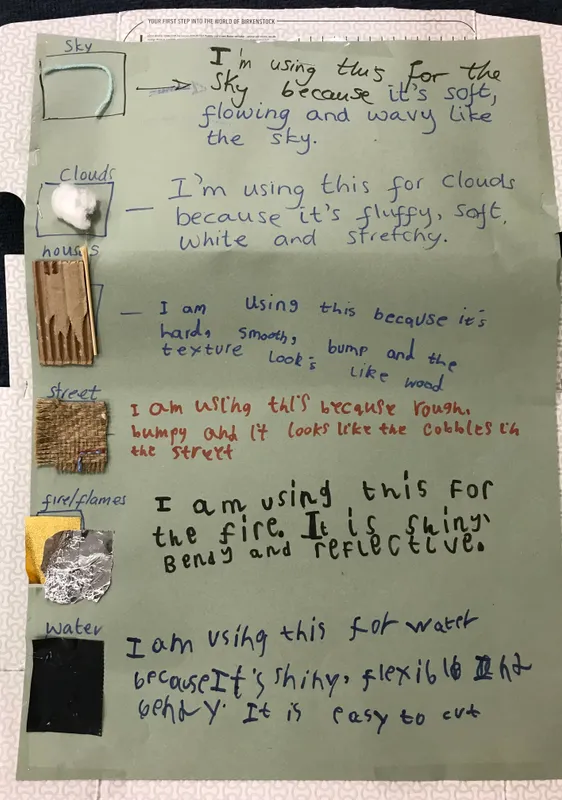 YOUR FIRST STEP INTO THE WORLD OF BIRKENSTOCK
Sky
I'm using this for the
sky because it's soft,
flowing and wavy like
the sky.
Clouds
I'm using this for clouds
because it's fluffy, soft,
white and stretchy.
houses
I am using this because it's
hard, smooth, bump and the
texture look's like wood
street
I am using this because rough,
bumpy and it looks like the cobbles in
the street
fire/flames
I am using this for
the fire. It is shiny,
Bendy and reflective.
water
I am using this for water
because It's shiny, flexible and
bendy. It is easy to cut